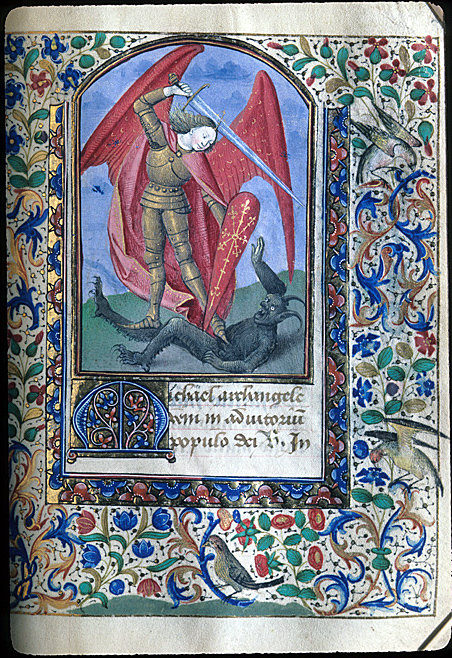 Michael archangele
veni in adiutoriū
populo dei V. In